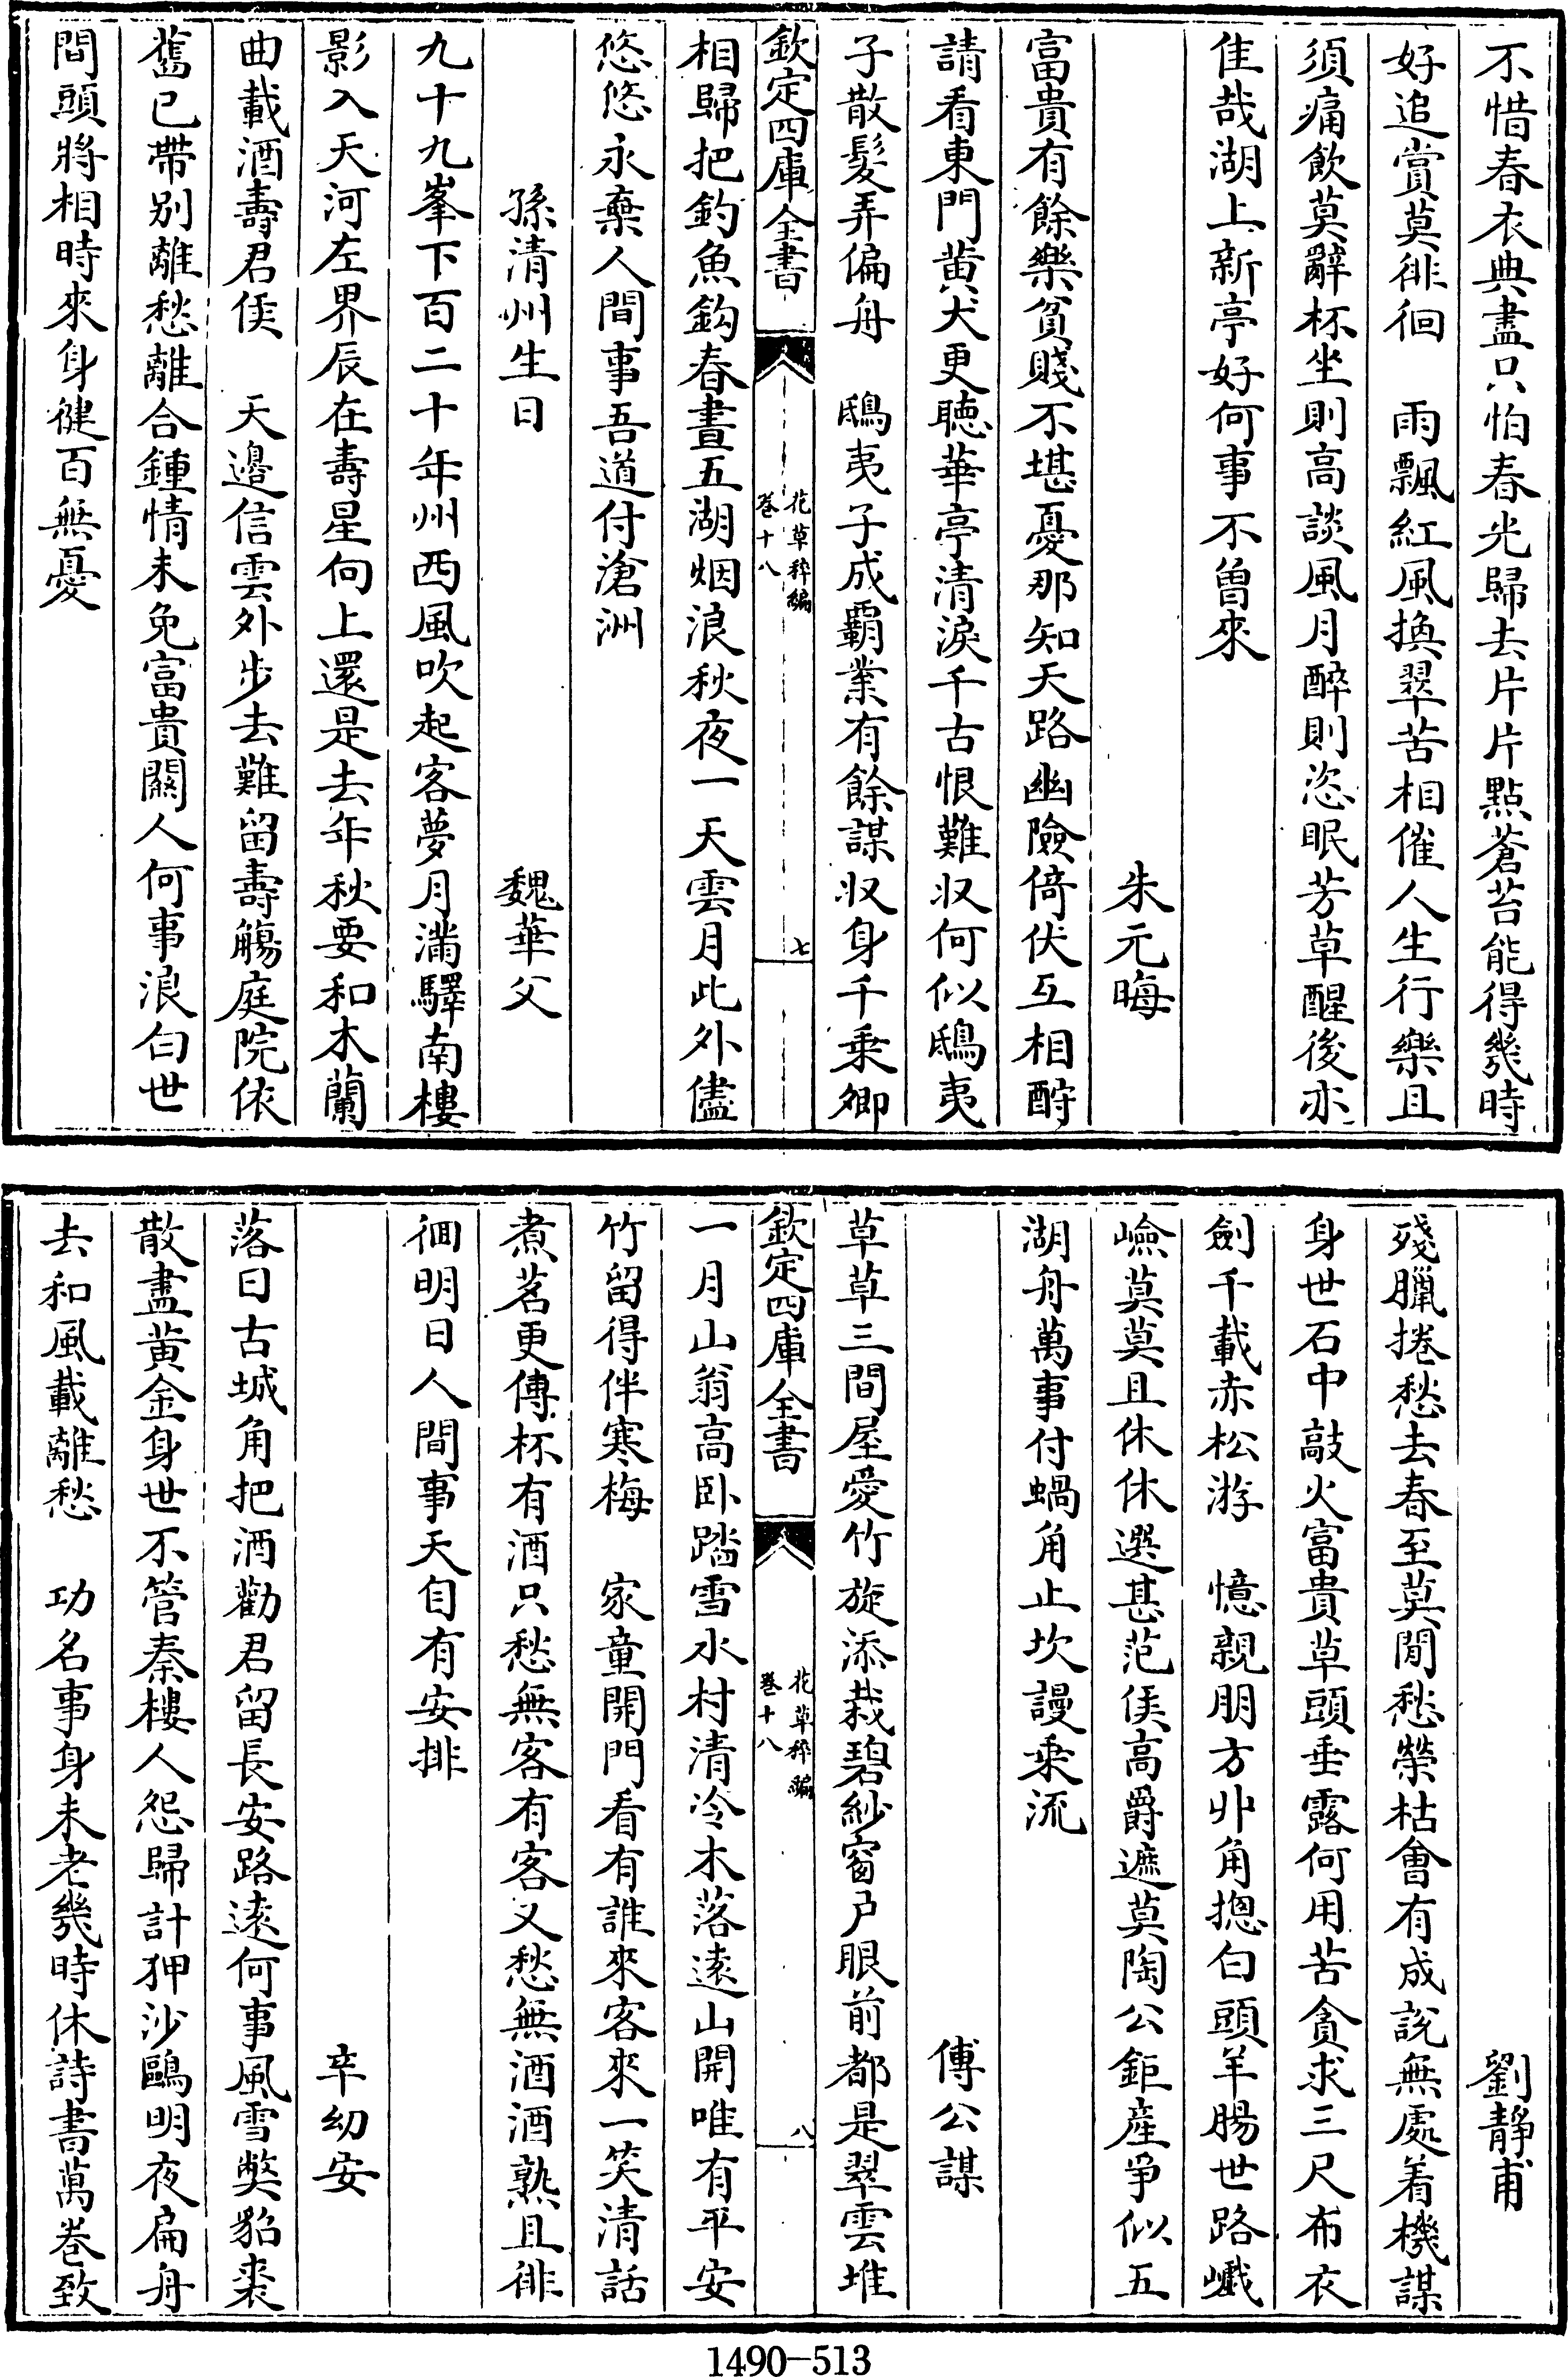 不惜春衣典盡只怕春光歸去片片點蒼苔能得幾時
好追賞莫徘徊　雨飄紅風換翠苦相催人生行樂且
須痛飲莫辭杯坐則高談風月醉則恣眠芳草醒後亦
佳哉湖上新亭好何事不曾來
朱元晦
富貴有餘樂貧賤不堪憂那知天路幽險倚伏互相酧
請看東門黄犬更聽華亭清淚千古恨難収何似鴟夷
子散髮弄偏舟　鴟夷子成覇業有餘謀収身千乗卿
欽定四庫全書
花草稡編
卷十八
七
相歸把釣魚鈎春晝五湖烟浪秋夜一天雲月此外儘
悠悠永棄人間事吾道付滄洲
孫清州生日　魏華父
九十九峯下百二十年州西風吹起客夢月滿驛南樓
影入天河左界辰在壽星向上還是去年秋要和木蘭
曲載酒壽君侯　天邉信雲外步去難留壽觴庭院依
舊已帶别離愁離合鍾情未免富貴關人何事浪白世
間頭將相時來身健百無憂
劉靜甫
殘臘捲愁去春至莫閒愁榮枯會有成説無處着機謀
身世石中敲火富貴草頭垂露何用苦貪求三尺布衣
劍千載赤松游　憶親朋方丱角摠白頭羊腸世路巇
嶮莫莫且休休選甚范侯高爵遮莫陶公鉅産爭似五
湖舟萬事付蝸角止坎謾乗流
傅公謀
草草三間屋愛竹旋添栽碧紗窗户眼前都是翠雲堆
欽定四庫全書
花草稡編
卷十八
八
一月山翁高卧踏雪水村清冷木落逺山開唯有平安
竹留得伴寒梅　家童開門看有誰來客來一笑清話
煮茗更傳杯有酒只愁無客有客又愁無酒酒熟且徘
徊明日人間事天自有安排
辛幼安
落日古城角把酒勸君留長安路逺何事風雪獘貂裘
散盡黄金身世不管秦樓人怨歸計狎沙鷗明夜扁舟
去和風載離愁　功名事身未老幾時休詩書萬卷致
1490-513